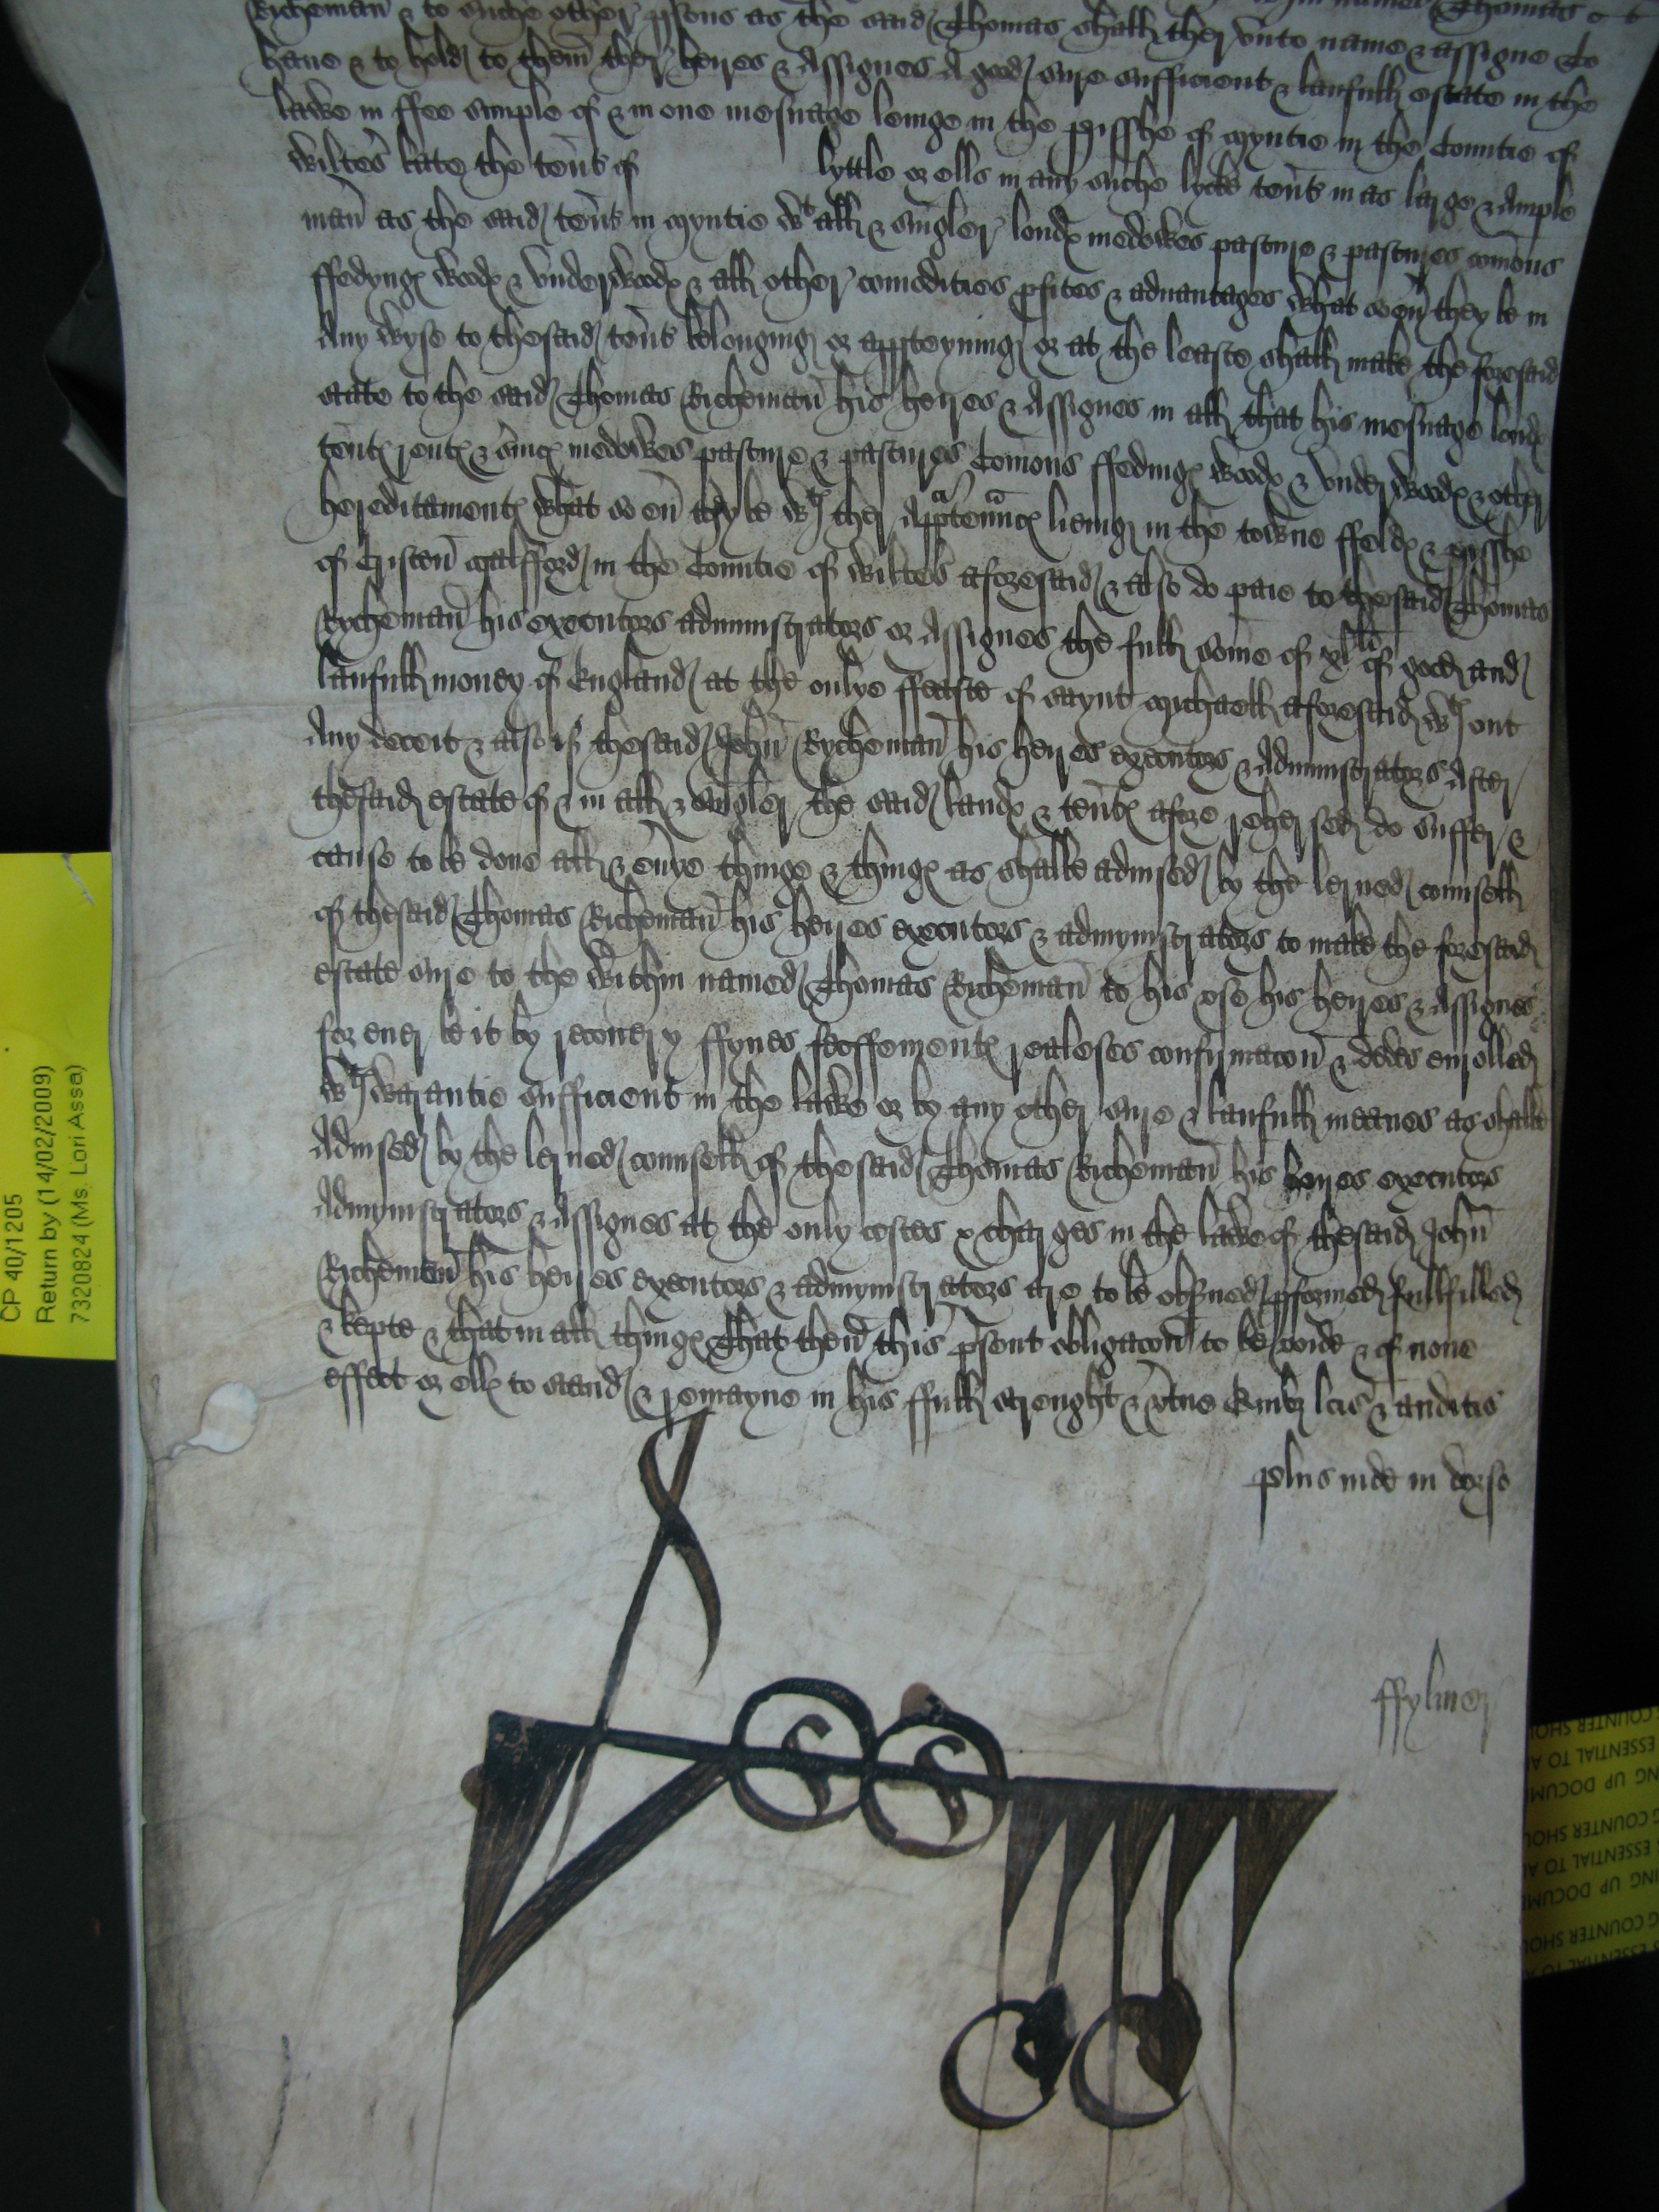 Richeman & to suche other psons as the said Thomas shall ther vnto name & assigne To
haue & to hold to them ther heyres & Assignes A good sure sufficient & laufull estate in the
lawe in ffee simple of & in one mesuage leinge in the pisshe of Myntie in the Countie of
Wiltes late the tents of lyttle or ells in any suche lycke tents in as large & Ample
man as the said tents in Myntie wt all & singler lond medowes pasture & pastures comons
ffedyng wood & vnderwood & all other comodities pfites & aduantages what so eu they be in
Any wyse to thesaid tents belonginge or appteyning or at the leaste shall make the foresaid
state to the said Thomas Richeman his heyres & Assignes in all that his mesuage lond
tent rent & suic medowes pasture & pastures Comons ffeding wood & vnderwood & other
hereditament what so eu they be wth ther Apptennc lieing in the towne ffeld & pisshe
of Cristen Malfford in the Countie of Wiltes aforesaid & also do paie to thesaid Thomas
Rycheman his executors administrators or Assignes the full some of xl li of good and
laufull money of England at the onlye ffeaste of saynt Michaell aforesaid wth out
Any deceit & also if thesaid John Rycheman his heyres executors & Administrators After
thesaid estate of & in all & singler the said land & tent afore rehersed do suffer &
cause to be done all & euye thinge & thing as shalbe aduised by the lerned counsell
of thesaid Thomas Richeman his heyres executors & admynistrators to make the foresaid
estate sure to the within named Thomas Richeman to his vse his heyres & Assignes
for euer be it by recouery ffynes feoffement realeses confirmacon & dedes enrolled
wth warantie sufficient in the lawe or by any other sure & laufull meanes as shalbe
Aduised by the lerned counsell of thesaid Thomas Richeman his heyres executors
Admynistrators & Assignes at the only costes & charges in the lawe of thesaid John
Richeman his heyres executors & admynistrators are to be obsued pformed fullfilled
& kepte & that in all thing That then this psent obligacon to be voide & of none
effect or ell to stand & remayne in his ffull strenght & vtue Quib lcis & auditis
plus inde in dorso
ffylmer
CP 40/1205
Return by (14/02/2009)
7320824 (Ms. Lori Assa)